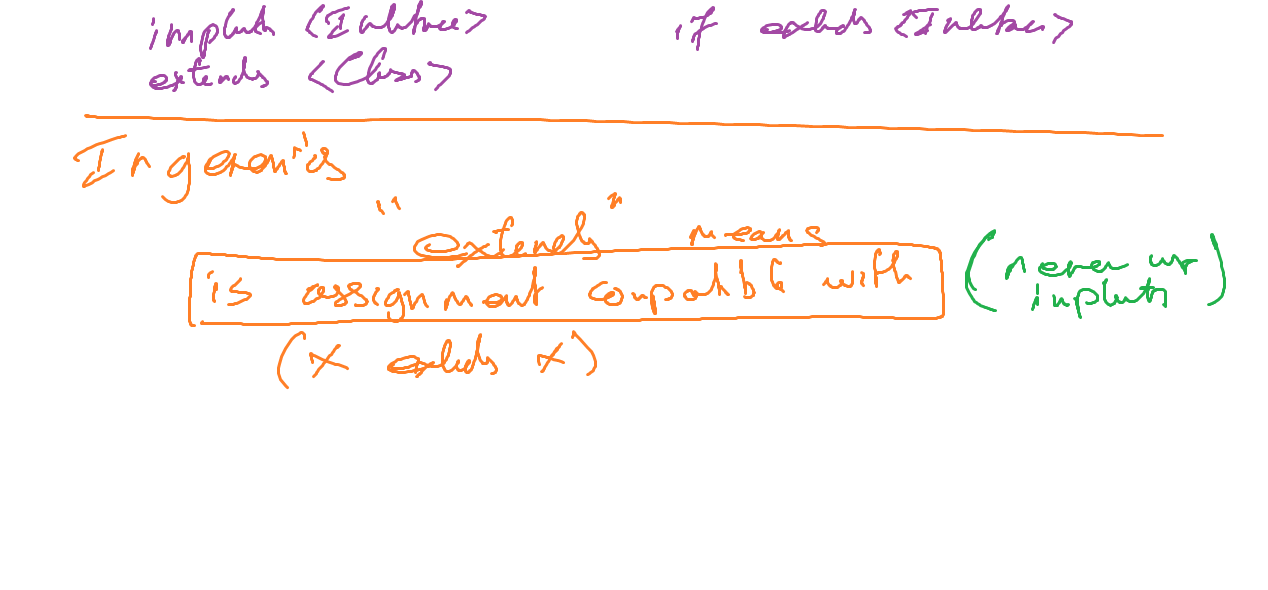 implements <Interface> if extends <Interface>
extends <Class>
In generics
"extends" means
is assignment compatible with
(never use
implements)
(X extends X)